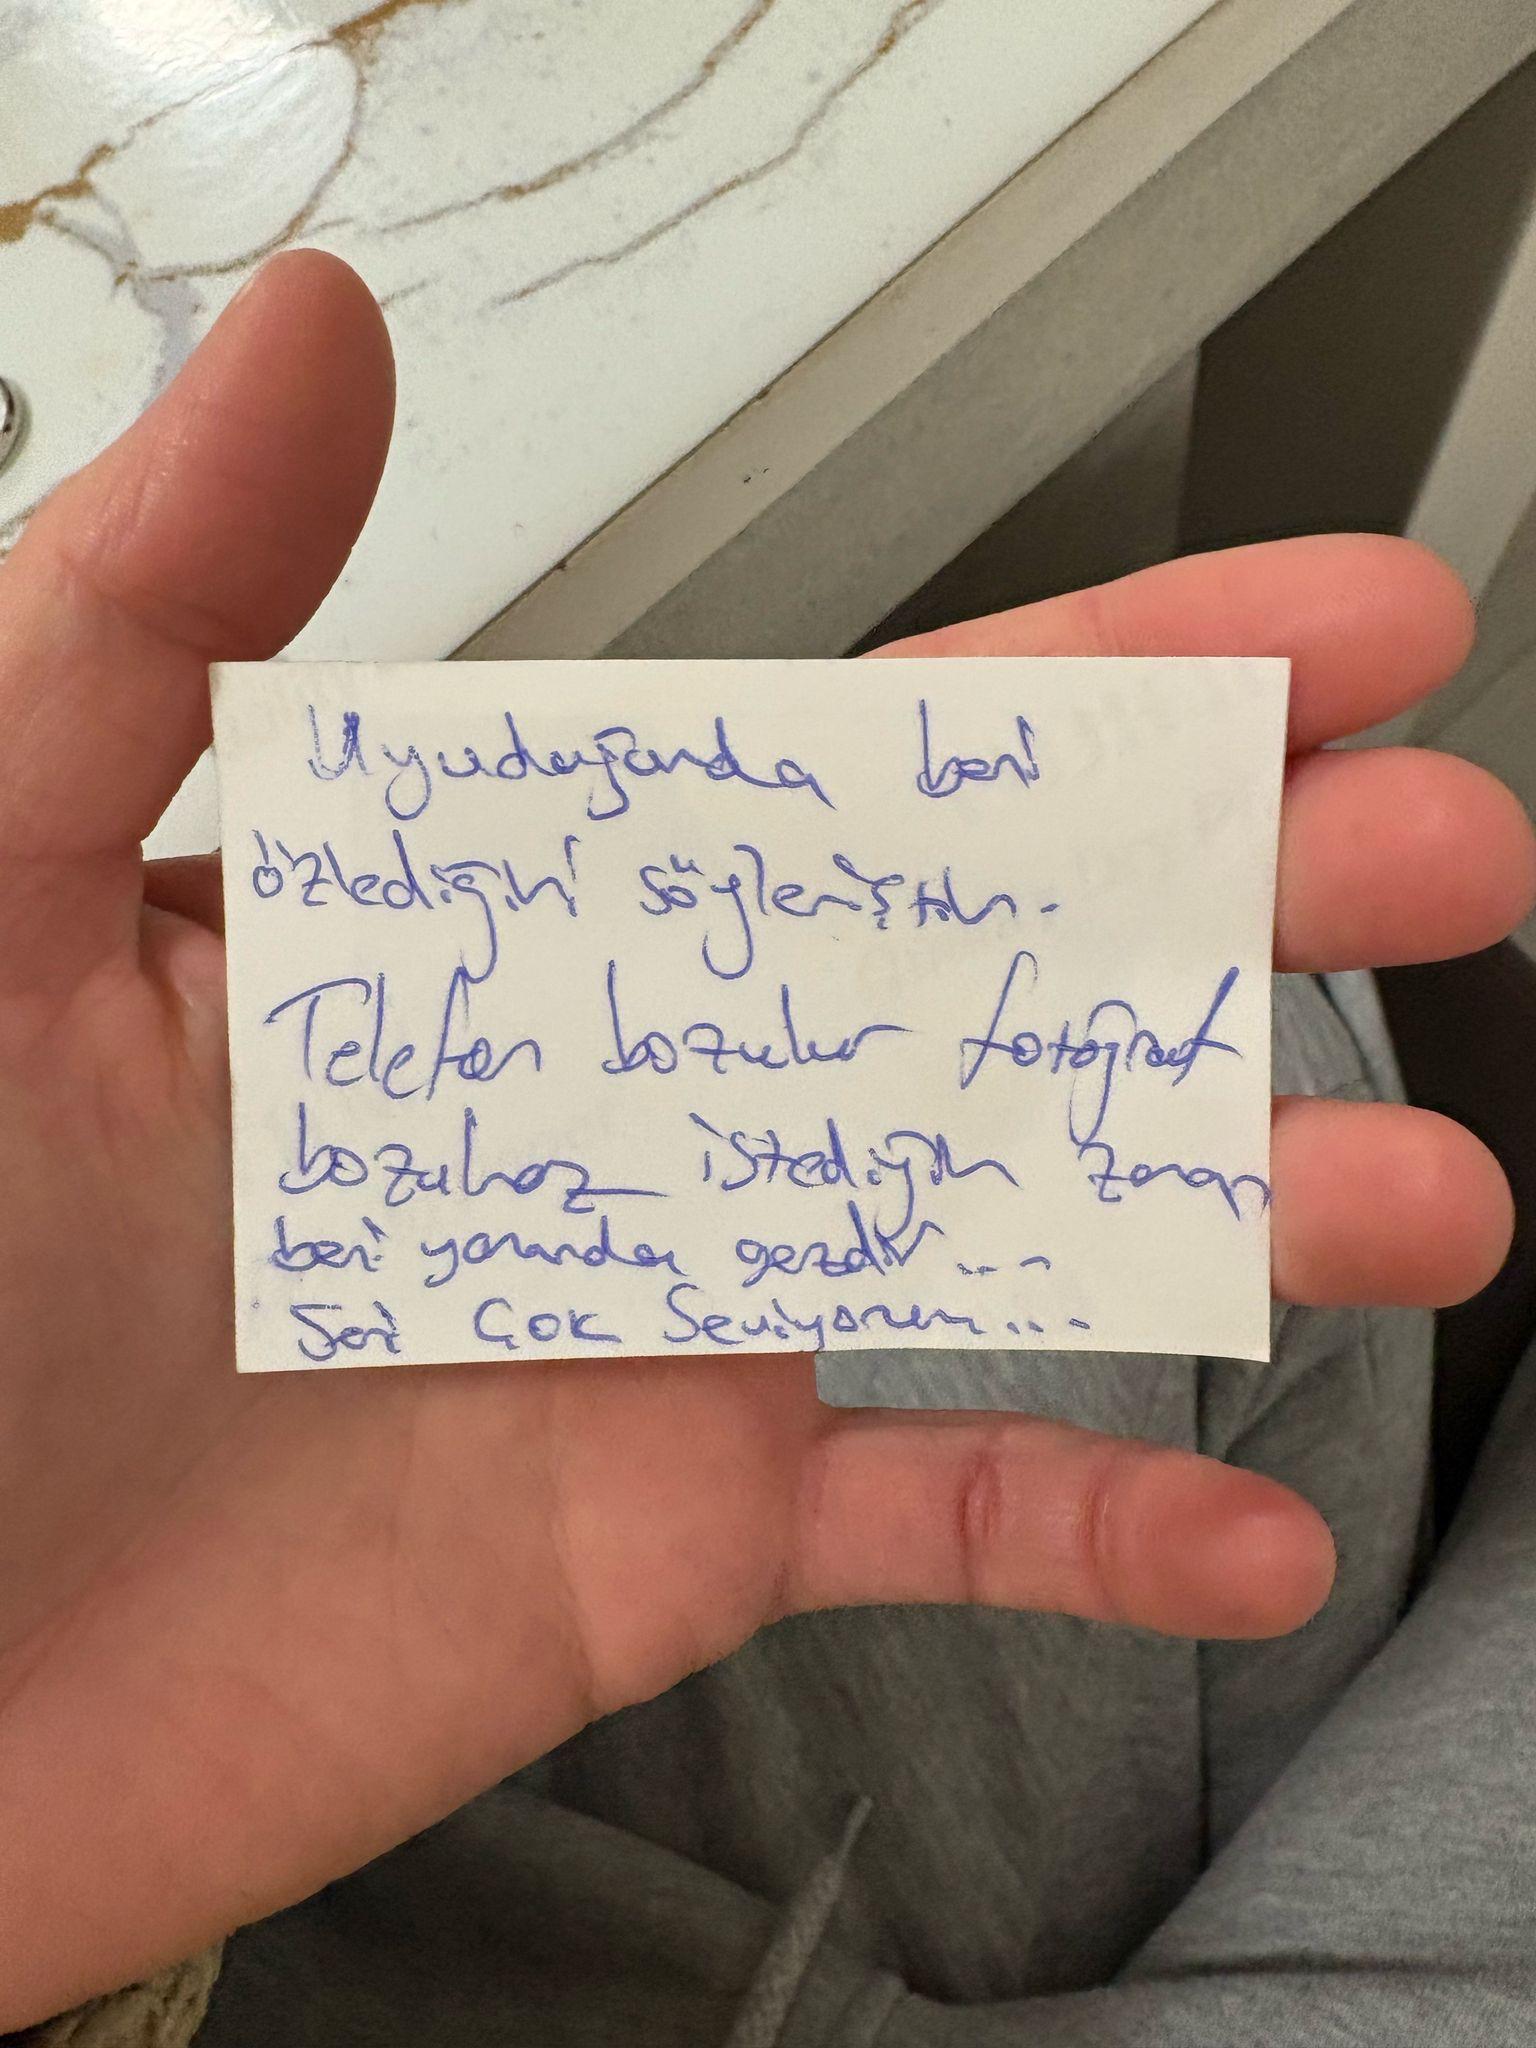 Uyuduğunda beni
özlediğini söylemiştin.
Telefon bozulur fotoğraf
bozulmaz istediğin zaman
beni yanında gezdir...
Seni Çok Seviyorum...